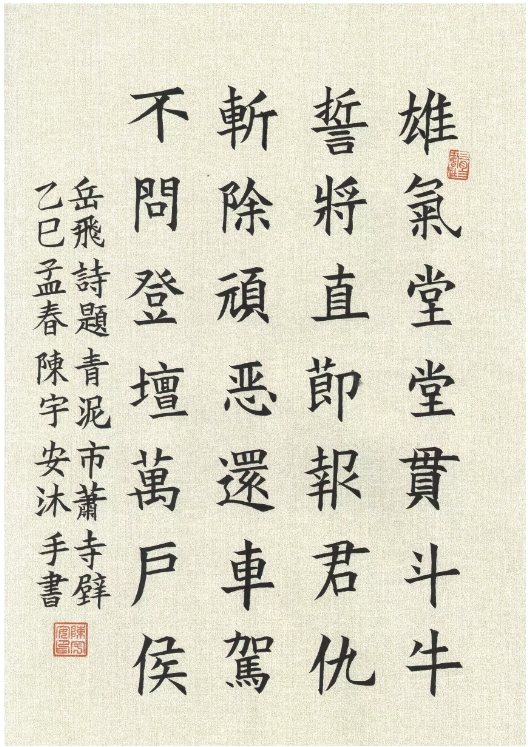 雄氣堂堂貫斗牛
誓將直節報君仇
斬除頑恶還車駕
不問登壇萬戶侯
岳飛詩題青泥市蕭寺壁
乙巳孟春陳宇安沐手書